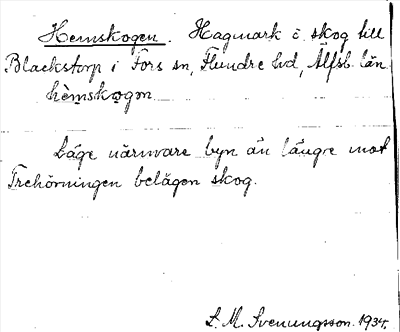 Hemskogen. Hagmark o. skog till
Blackstorp i Fors sn, Flundre hd, Älfsb. län
hèmskogen
Låge närmare byn än längre mot
Trehörningen belägen skog.
S. M. Svenungsson. 1934.